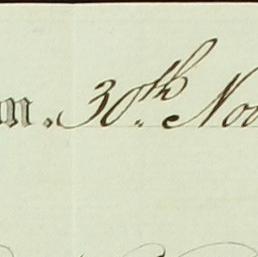 30th Nov